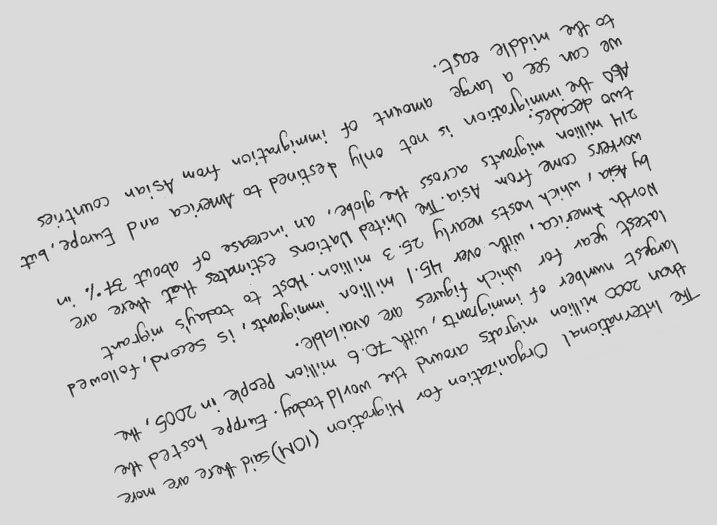 The International Organization for Migration (IOM) said there are more
than 2000 million migrats around the world today. Eurppe hosted the
largest number of immigrants, with 70.6 million people in 2005, the
latest year for which figures are available.
North America, with over 45.1 million immigrants, is second, followed
by Asia, which hosts nearly 25.3 million. Host to today's migrant
workers come from Asia. The United Nations estimates that there are
214 million migrants across the globe, an increase of about 37% in
two decades.
Also the immigration is not only destined to America and Europe, but
we can see a large amount of immigration from Asian countries
to the middle east.